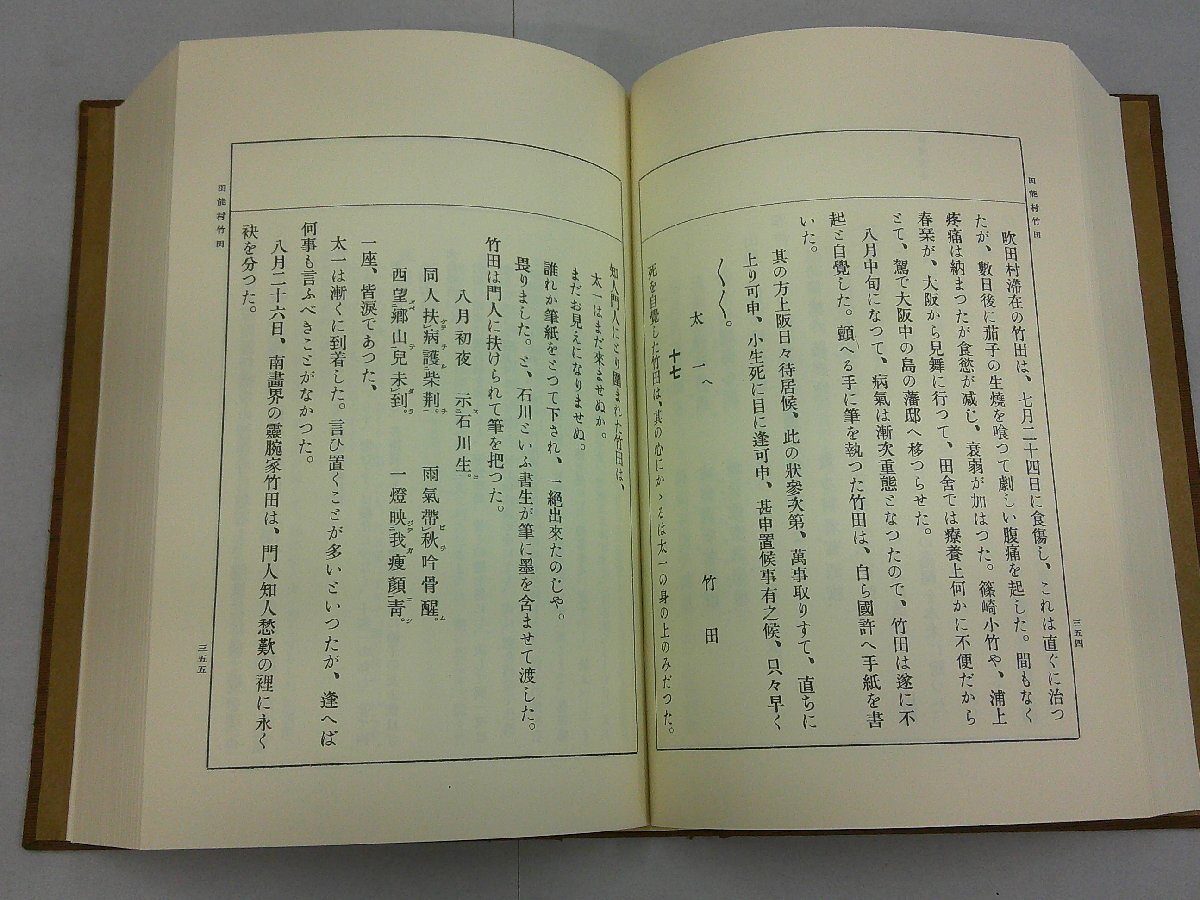 田能村竹田
三五四
吹田村滯在の竹田は、七月二十四日に食傷し、これは直ぐに治つ
たが、數日後に茄子の生燒を喰つて劇しい腹痛を起した。間もなく
疼痛は納まつたが食慾が減じ、衰弱が加はつた。篠崎小竹や、浦上
春琹が、大阪から見舞に行つて、田舍では療養上何かに不便だから
とて、駕で大阪中の島の藩邸へ移つらせた。
八月中旬になつて、病氣は漸次重態となつたので、竹田は遂に不
起と自覺した。顫へる手に筆を執つた竹田は、自ら國許へ手紙を書
いた。
其の方上阪日々待居候、此の狀參次第、萬事取りすて、直ちに
上り可申、小生死に目に逢可申、甚申置候事有之候、只々早く
〱〱。
竹田
太一へ
十七
死を自覺した竹田は、其の心にかゝるは太一の身の上のみだつた。
知人門人にとり圍まれた竹田は、
太一はまだ來ませぬか。
まだお見えになりませぬ。
誰れか筆紙をとつて下され、一絕出來たのじや。
畏りました。と、石川といふ書生が筆に墨を含ませて渡した。
竹田は門人に扶けられて筆を把つた。
八月初夜 示石川生。
同人扶病護柴荆。 雨氣帶秋吟骨醒。
西望鄕山兒未到。 一燈映我瘦顏靑。
一座、皆淚であつた、
太一は漸くに到着した。言ひ置くことが多いといつたが、逢へば
何事も言ふべきことがなかつた。
八月二十六日、南畵界の靈腕家竹田は、門人知人愁歎の裡に永く
袂を分つた。
田能村竹田
三五五